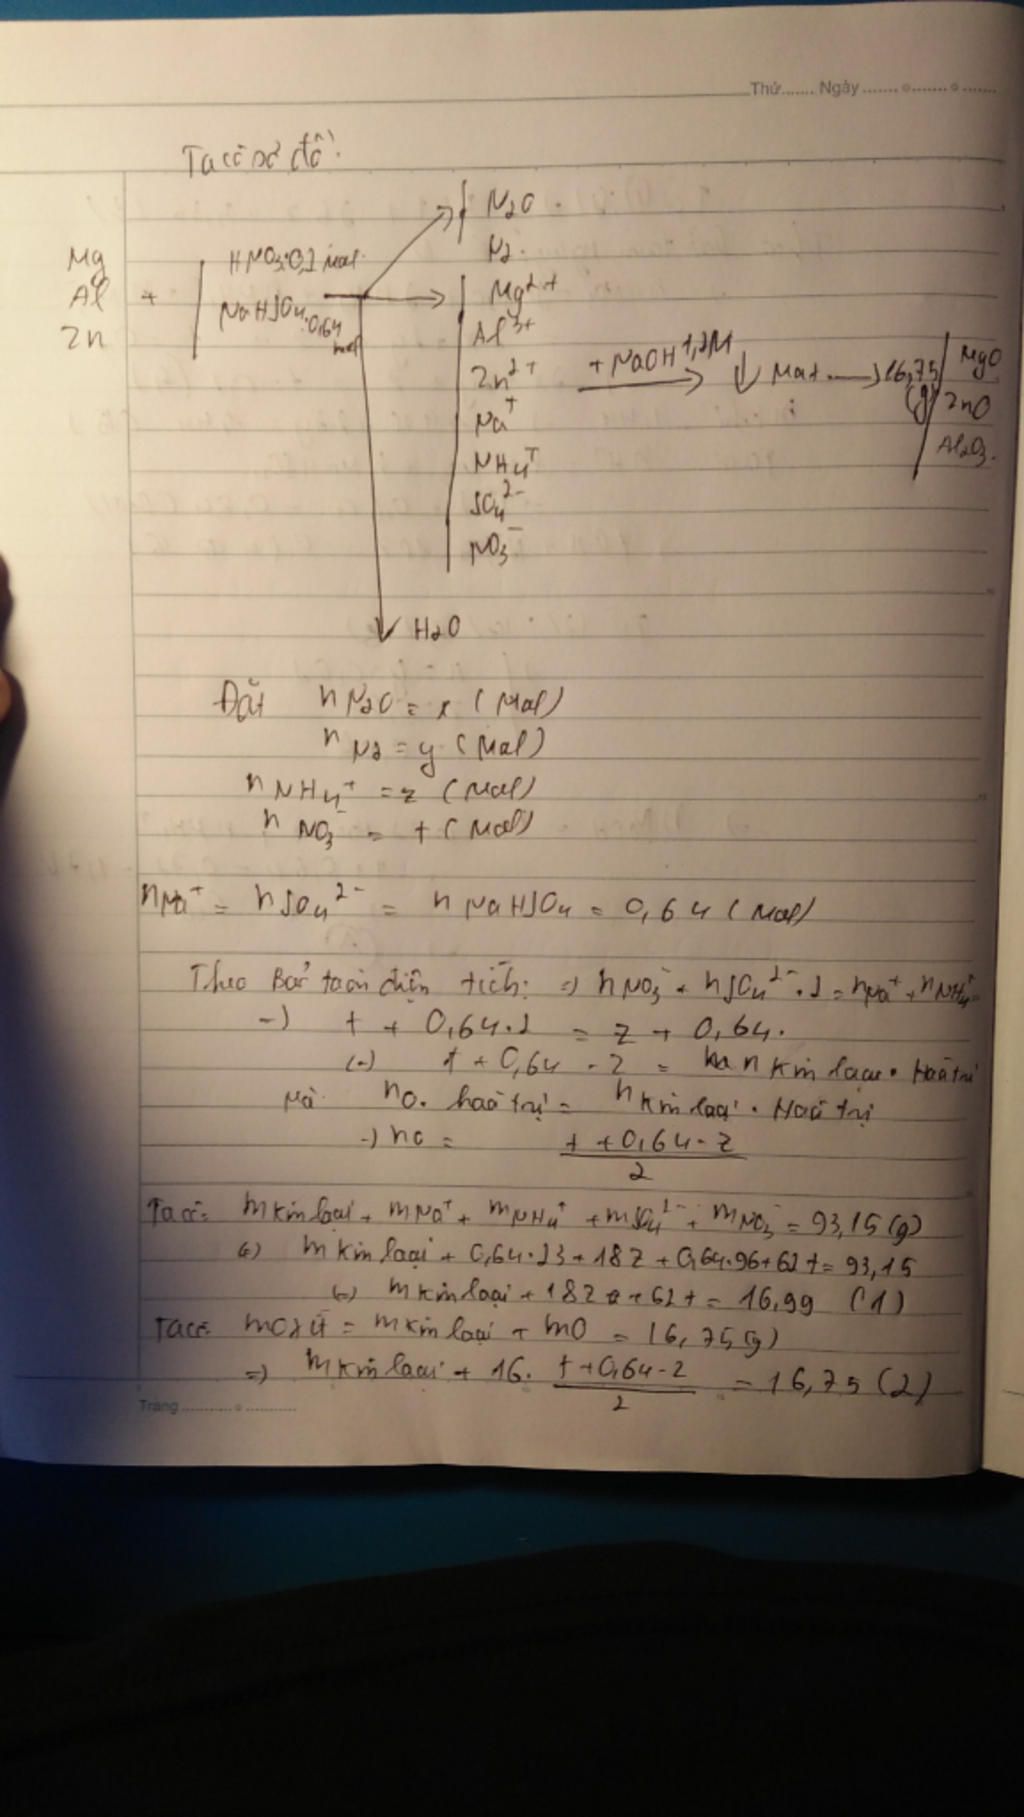 Thứ....... Ngày ....... o ....... o .......
Ta có sơ đồ:
N2O
Mg HNO3: 0,2 mol N2
Al + NaHSO4: 0,64 mol Mg2+
Zn Al3+
Zn2+ + NaOH 1,2M ↓ Max → 16,75 (g) MgO
Na+ ZnO
NH4+ Al2O3
SO4 2-
NO3-
H2O
Đặt nN2O = x (mol)
nN2 = y (mol)
nNH4+ = z (mol)
nNO3- = t (mol)
nNa+ = nSO4 2- = nNaHSO4 = 0,64 (mol)
Theo Bảo toàn điện tích: => nNO3- + nSO4 2- . 2 = nNa+ + nNH4+
-) t + 0,64.2 = z + 0,64.
(-) t + 0,64 - z = n kim loại . Hoá trị
Mà nO. hoá trị = n kim loại . Hoá trị
-) nO = t + 0,64 - z / 2
Ta có: m kim loại + mNa+ + mNH4+ + mSO4 2- + mNO3- = 93,15 (g)
(-) m kim loại + 0,64.23 + 18z + 0,64.96 + 62t = 93,15
(-) m kim loại + 18z + 62t = 16,99 (1)
Ta có: m oxit = m kim loại + mO = 16,75 (g)
=) m kim loại + 16. t + 0,64 - z / 2 = 16,75 (2)
Trang .......... o ..........